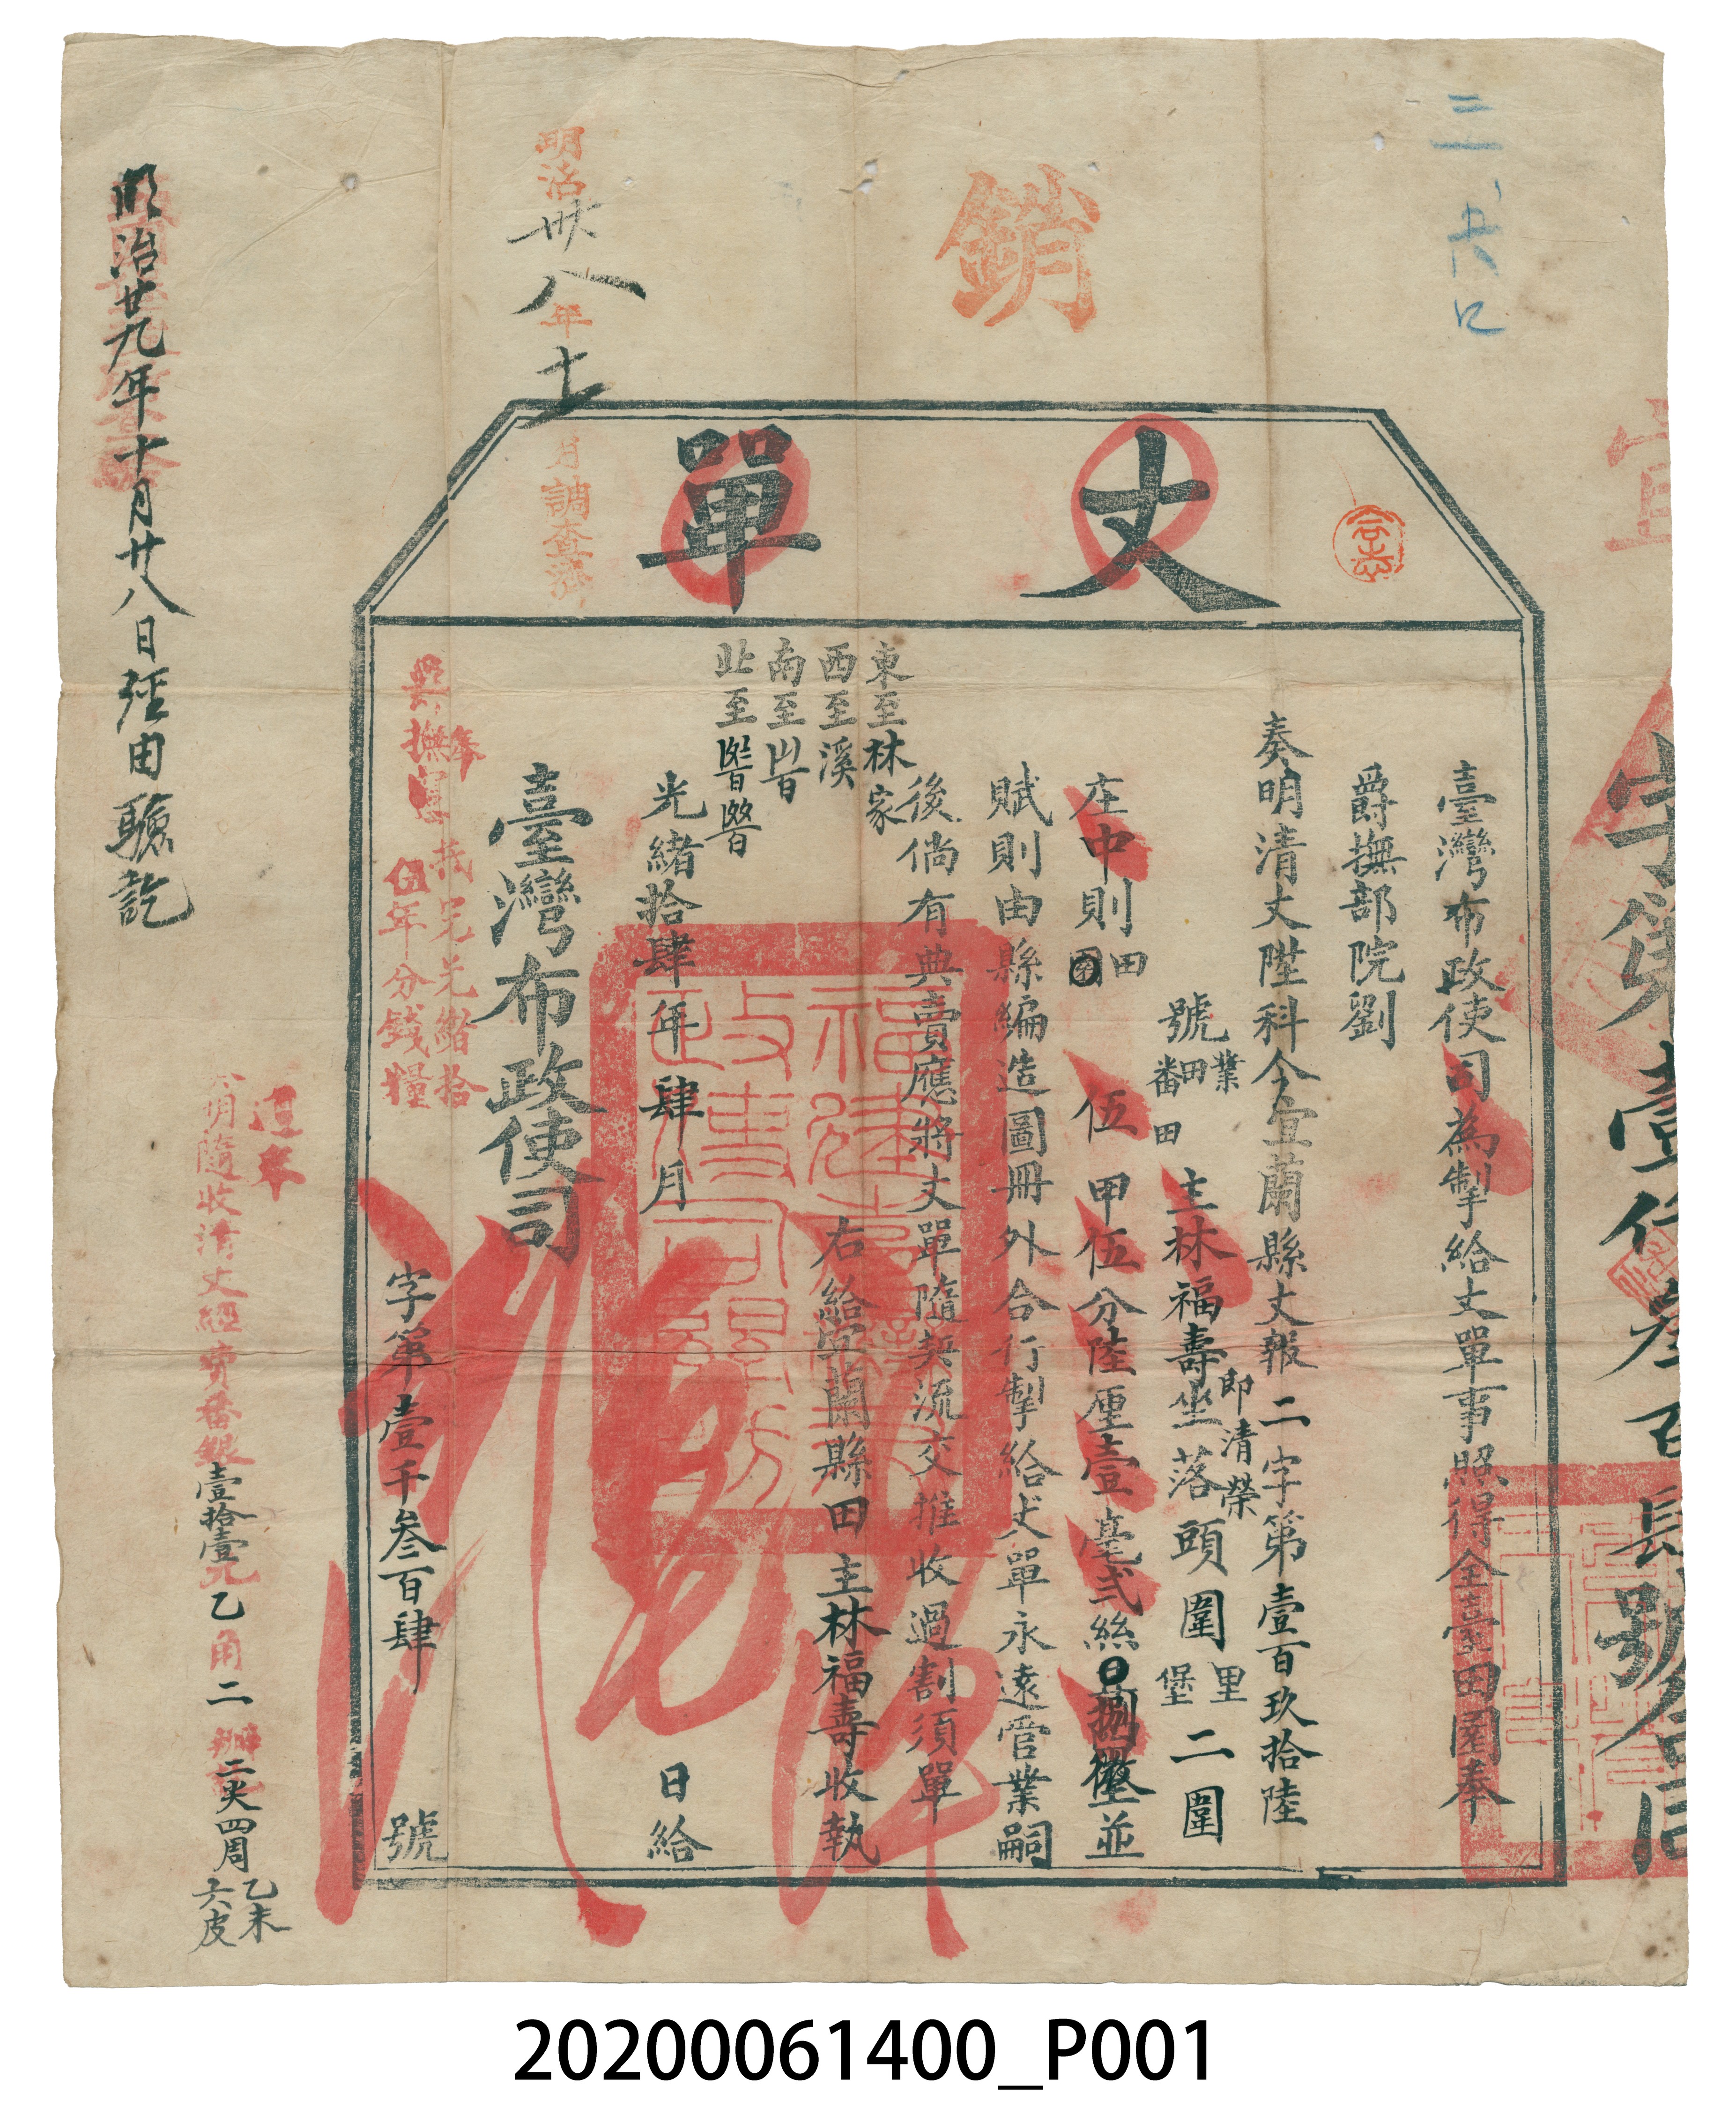 三、六口
銷
丈單
宜
字第壹仟叁百肆號
臺灣布政使司為掣給丈單事照得全臺田園奉
爵撫部院劉
奏明清丈陞科今宜蘭縣丈報二字第壹百玖拾陸
號業田番田主林福壽即清榮坐落頭圍里堡二圍
庄中則田園伍甲伍分陸厘壹毫弍絲捌
並
賦則由縣編造圖冊外合行掣給丈單永遠管業嗣
後倘有典賣應將丈單隨契流交推收過割須單
東至林家
西至溪
南至
北至
右給宜蘭縣田主林福壽收執
光緒拾肆年肆月日給
臺灣布政使司
字第壹千叁百肆號
奉
撫憲
抵完光緒拾
伍年分錢糧
明治卅八年十二月調查濟
遵奉
明隨收清丈經費番銀壹拾壹元乙角二
二夾四周
乙未
六皮
明治廿九年十月廿八日經由驗訖
20200061400_P001